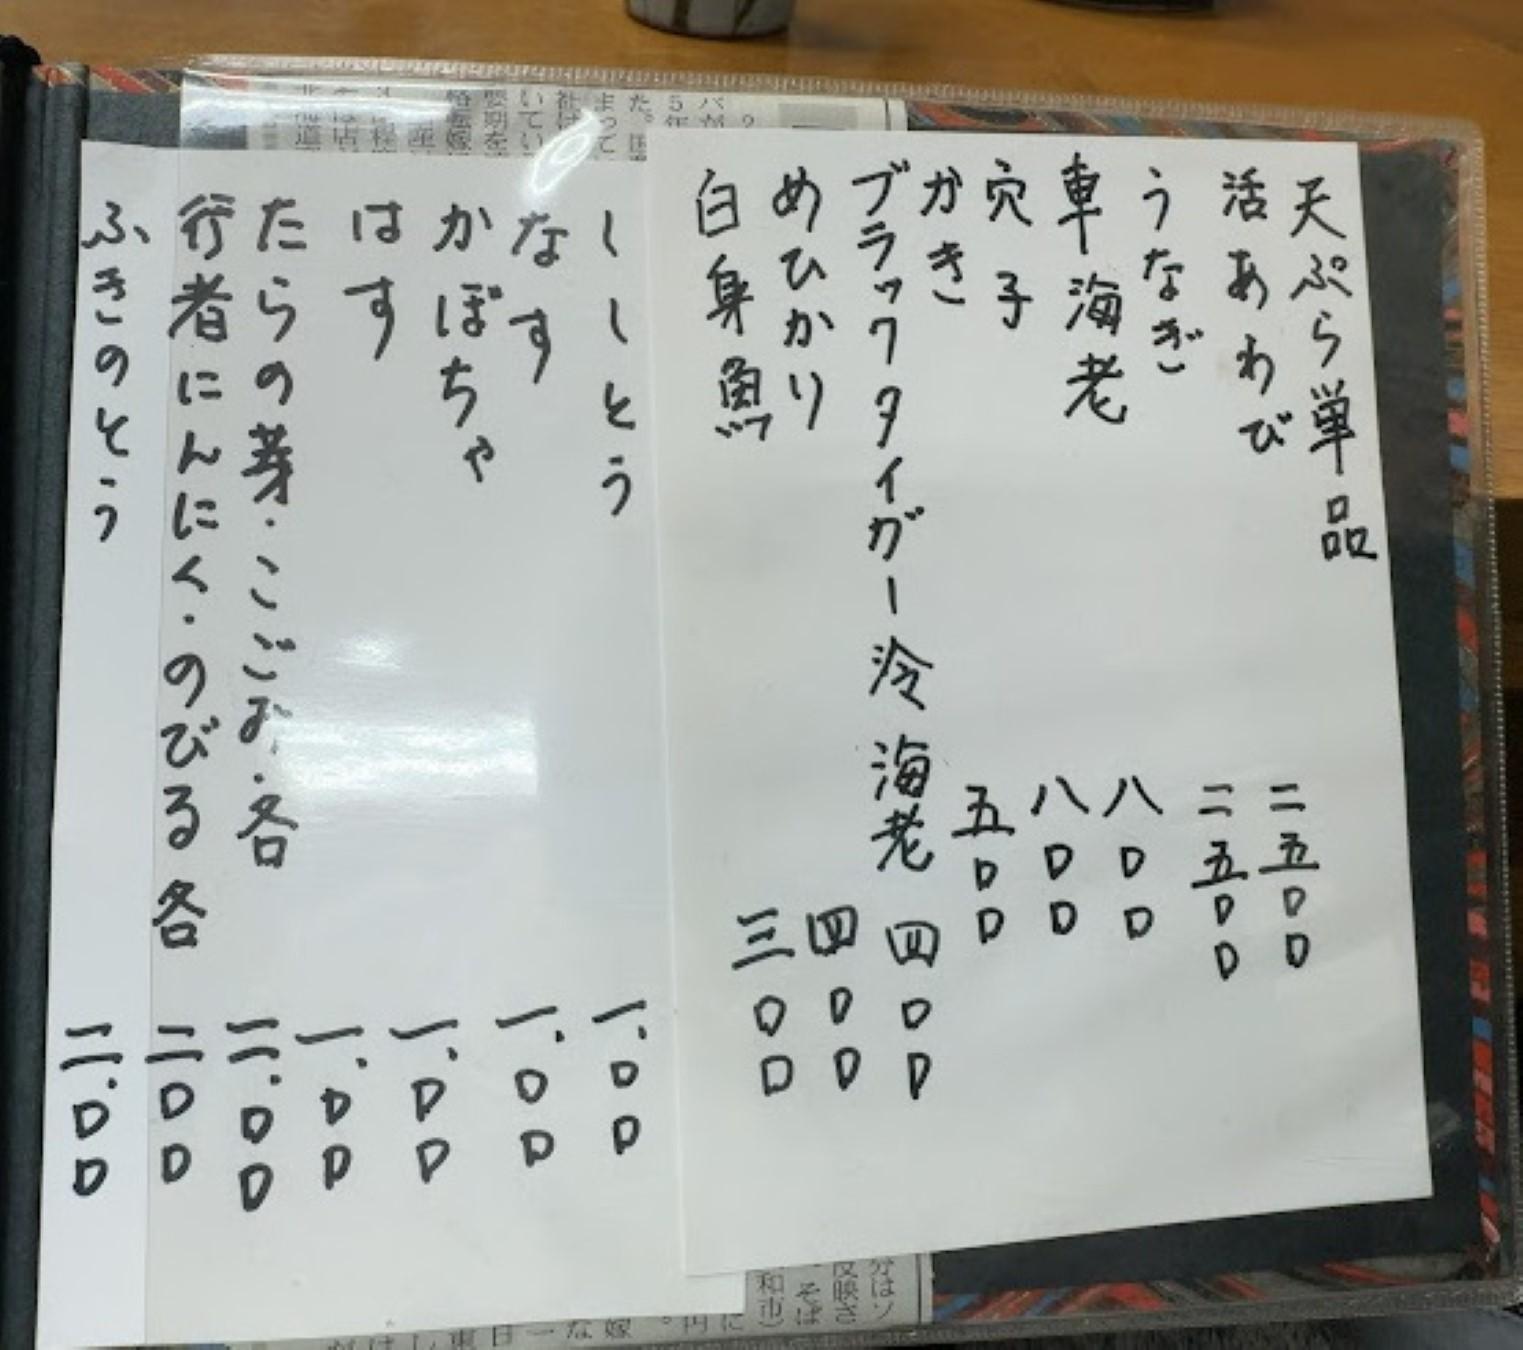 天ぷら単品
活あわび 二五〇〇
うなぎ 二五〇〇
車海老 八〇〇
穴子 八〇〇
かき 五〇〇
ブラックタイガー冷海老 四〇〇
めひかり 四〇〇
白身魚 三〇〇
ししとう 一.〇〇
なす 一.〇〇
かぼちゃ 一.〇〇
はす 一.〇〇
たらの芽・こごみ・各 二.〇〇
行者にんにく・のびる各 二〇〇
ふきのとう 二.〇〇